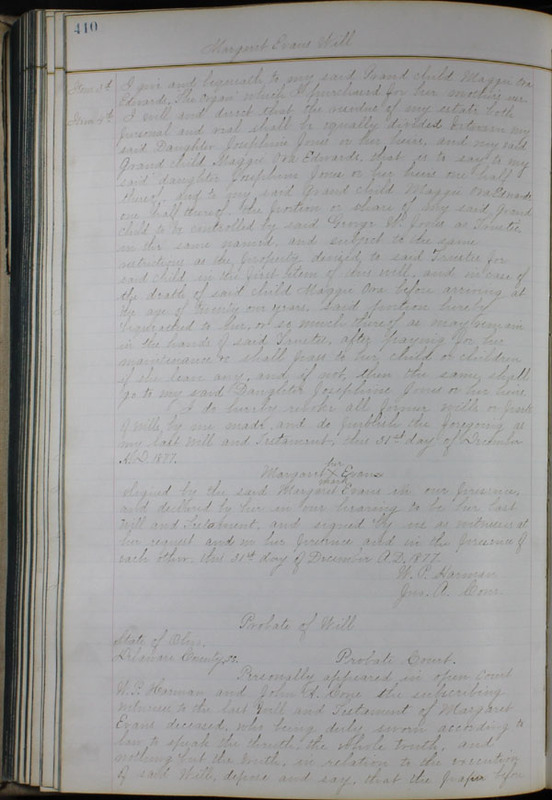 410
Margaret Evans Will
Item 3d. I give and bequeath to my said Grand child Maggie Ora
Edwards, The Organ which I purchased for her mothers use
Item 4th. I will and direct that the residue of my estate both
personal and real shall be equally divided between my
said Daughter Josephine Jones or her heirs, and my said
Grand child Maggie Ora Edwards, that is to say to my
said daughter Josephine Jones or her heirs one half
thereof and to my said Grand child Maggie Ora Edwards
one half thereof. The portion or share of my said grand
child to be controlled by said George W. Jones as Trustee
in the same manner, and subject to the same
restrictions as the property devised to said Trustee for
said child in the first Item of this will, and in case of
the death of said child Maggie Ora before arriving at
the age of twenty one years, said portion hereby
bequeathed to her, or so much thereof as may remain
in the hands of said Trustee, after paying for her
maintenance shall pass to her child or children
if she leave any, and if not, then the same shall
go to my said Daughter Josephine Jones or her heirs.
I do hereby revoke all former wills or parts
of wills, by me made and do publish the foregoing as
my last Will and Testament, this 31st day of December
A.D. 1877.
her
Margaret X Evans
mark
Signed by the said Margaret Evans in our presence,
and declared by her in our hearing to be her last
Will and Testament, and signed by us as witnesses at
her request and in her presence and in the presence of
each other this 31st day of December A.D. 1877.
W. P. Harman
Jno. A. Cone
Probate of Will
State of Ohio,
Delaware County, ss. Probate Court.
Personally appeared in open Court
W. P. Herman and John A. Cone the subscribing
witnesses to the last Will and Testament of Margaret
Evans deceased, who being duly sworn according to
law to speak the thruth, the whole truth, and
nothing but the truth, in relation to the execution
of said Will, depose and say, that the paper befor